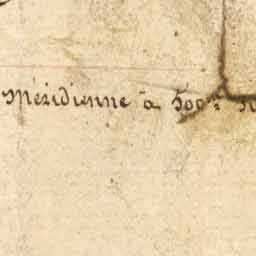 Méridienne à 500